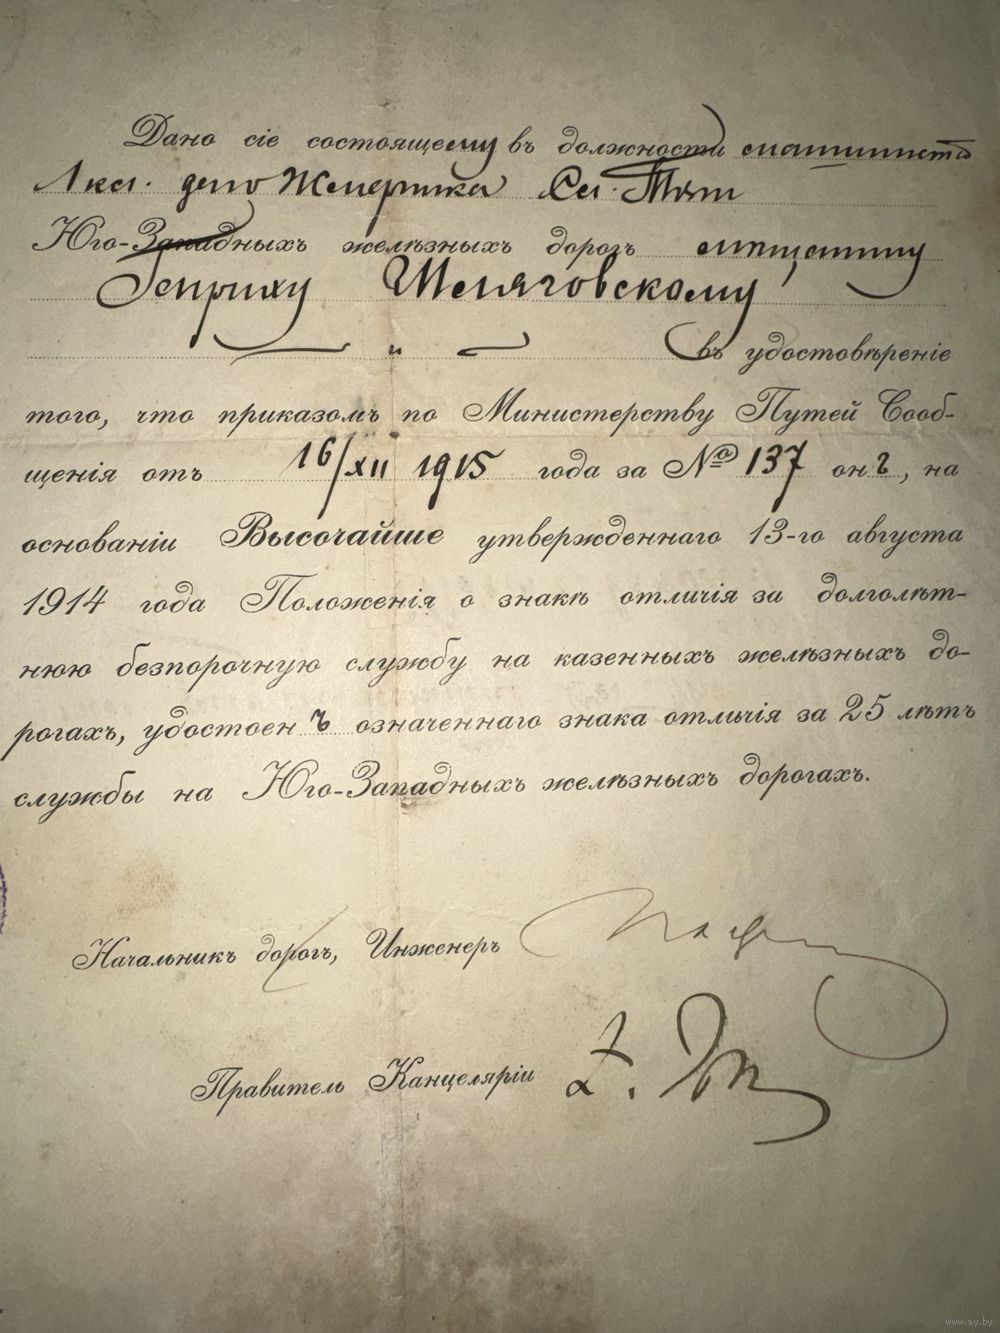 Дано сіе состоящему въ должности машиниста
депо Жмеринка Сл. Тяги
Юго-Западныхъ желѣзныхъ дорогъ мѣщанину
Генриху Шеляговскому
въ удостовѣреніе
того, что приказомъ по Министерству Путей Сооб-
щенія отъ 16/XII 1915 года за № 137 онъ, на
основаніи Высочайше утвержденнаго 13-го августа
1914 года Положенія о знакѣ отличія за долголѣт-
нюю безпорочную службу на казенныхъ желѣзныхъ до-
рогахъ, удостоенъ означеннаго знака отличія за 25 лѣтъ
службы на Юго-Западныхъ желѣзныхъ дорогахъ.
Начальникъ дорогъ, Инженеръ
Правитель Канцеляріи
www.ay.by